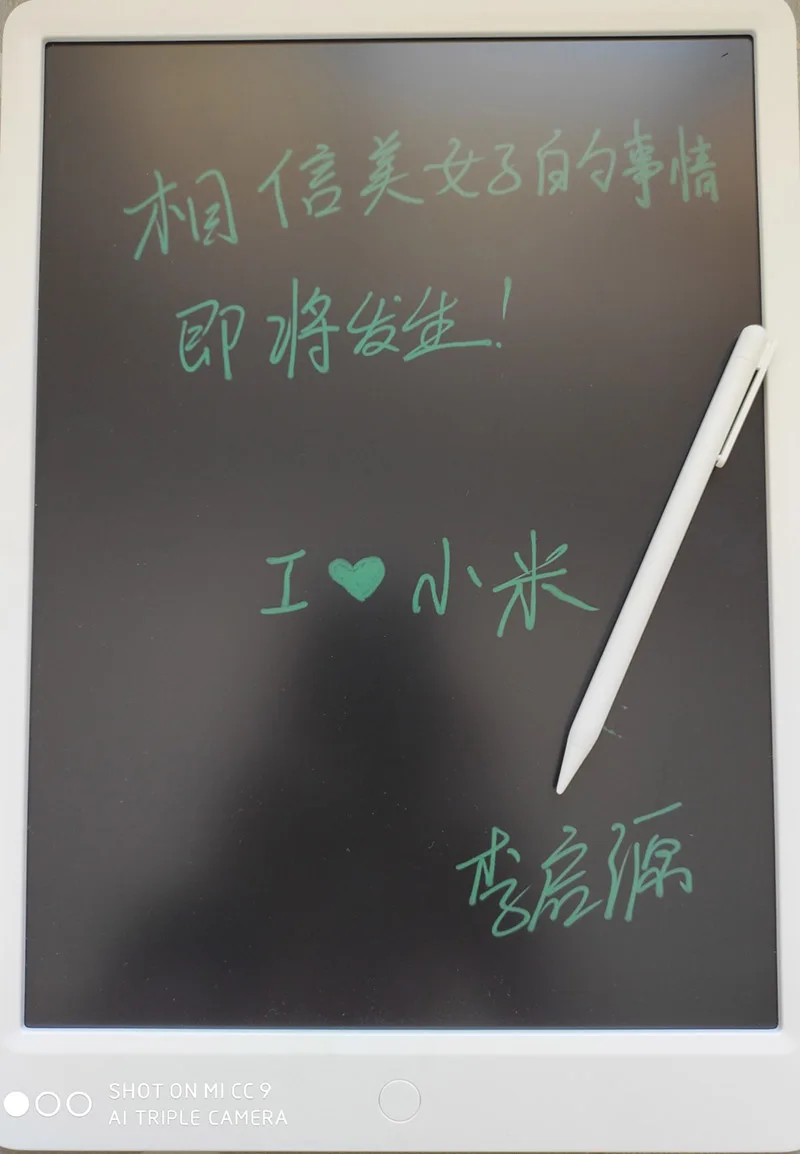 相信美好的事情
即将发生!
I ♥ 小米
李启源
SHOT ON MI CC 9
AI TRIPLE CAMERA